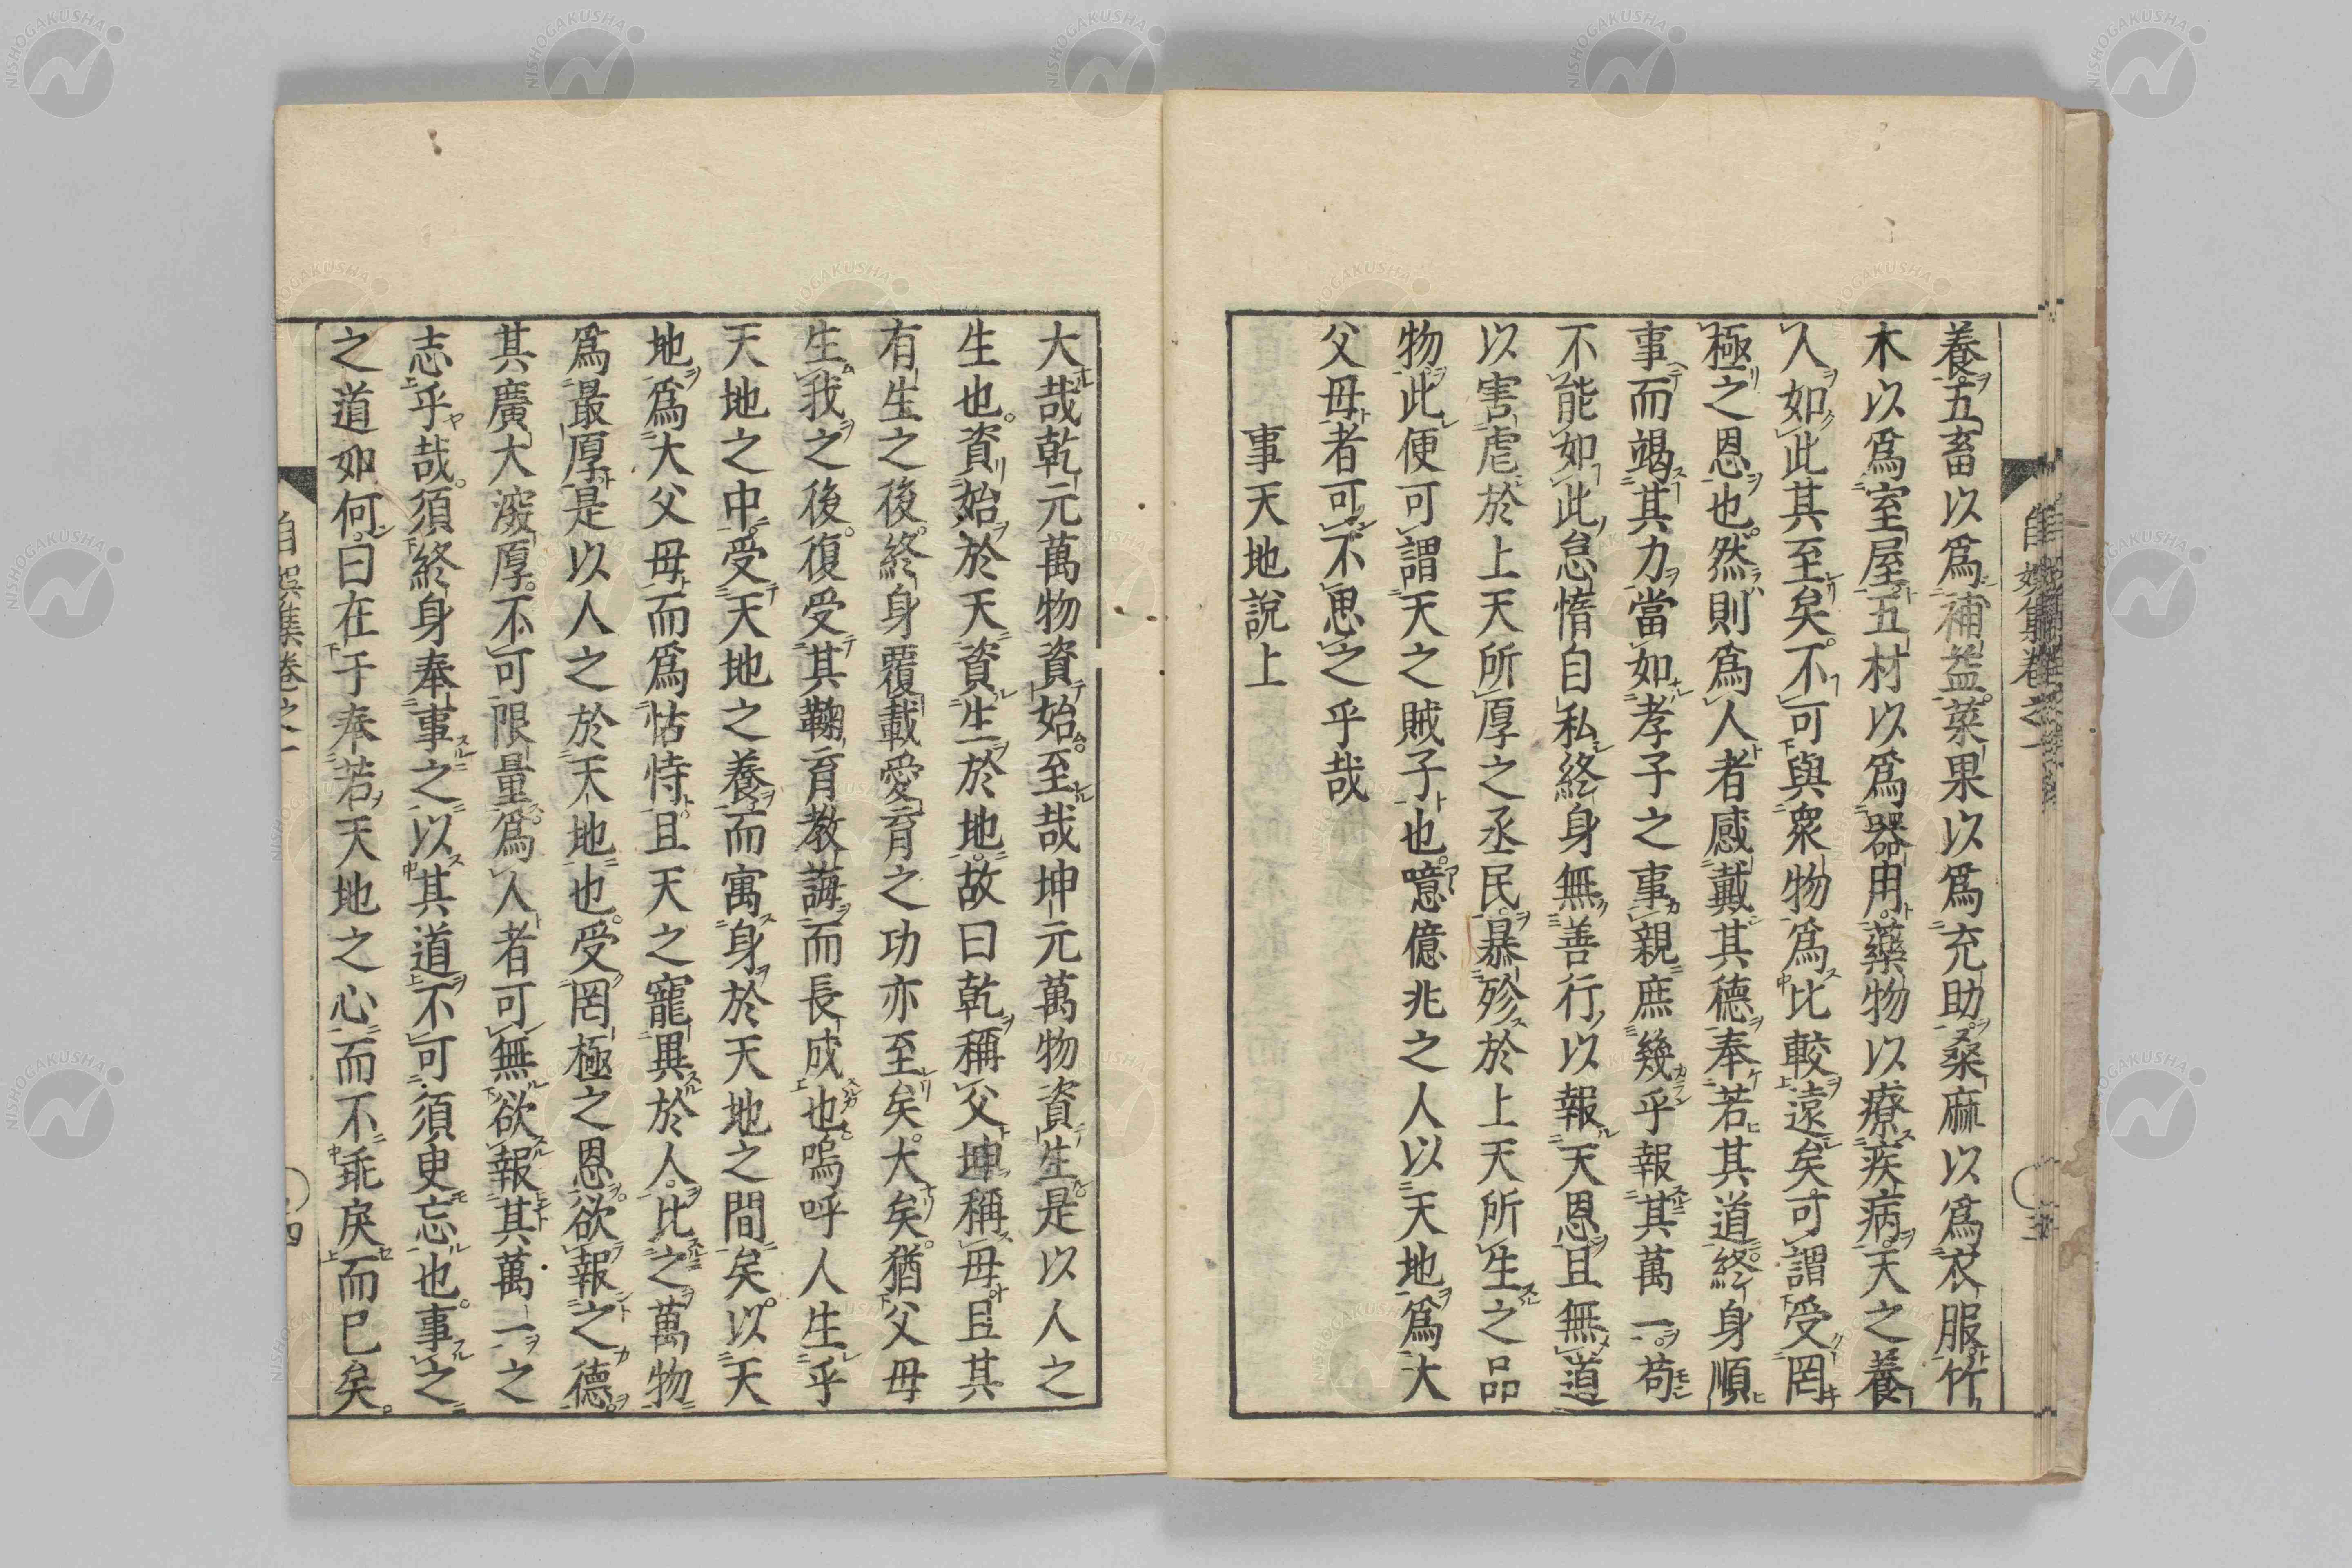 養五畜以爲補益菜果以爲充助桑麻以爲衣服竹
木以爲室屋五材以爲器用藥物以療疾病天之養
人如此其至矣不可與衆物爲比較遠矣可謂受罔
極之恩也然則爲人者感戴其德奉若其道終身順
事而竭其力當如孝子之事親庶幾乎報其萬一苟
不能如此怠惰自私終身無善行以報天恩且無道
以害虐於上天所厚之丞民暴殄於上天所生之品
物此便可謂天之賊子也噫億兆之人以天地爲大
父母者可不思之乎哉
事天地說上
大哉乾元萬物資始至哉坤元萬物資生是以人之
生也資始於天資生於地故曰乾稱父坤稱母且其
有生之後終身覆載愛育之功亦至矣大矣猶父母
生我之後復受其鞠育教誨而長成也嗚呼人生乎
天地之中受天地之養而寓身於天地之間矣以天
地爲大父母而爲怙恃且天之寵異於人比之萬物
爲最厚是以人之於天地也受罔極之恩欲報之德
其廣大深厚不可限量爲人者可無欲報其萬一之
志乎哉須終身奉事之以其道不可須臾忘也事之
之道如何曰在于奉若天地之心而不乖戾而已矣
自娛集卷之一
四
NISHOGAKUSHA